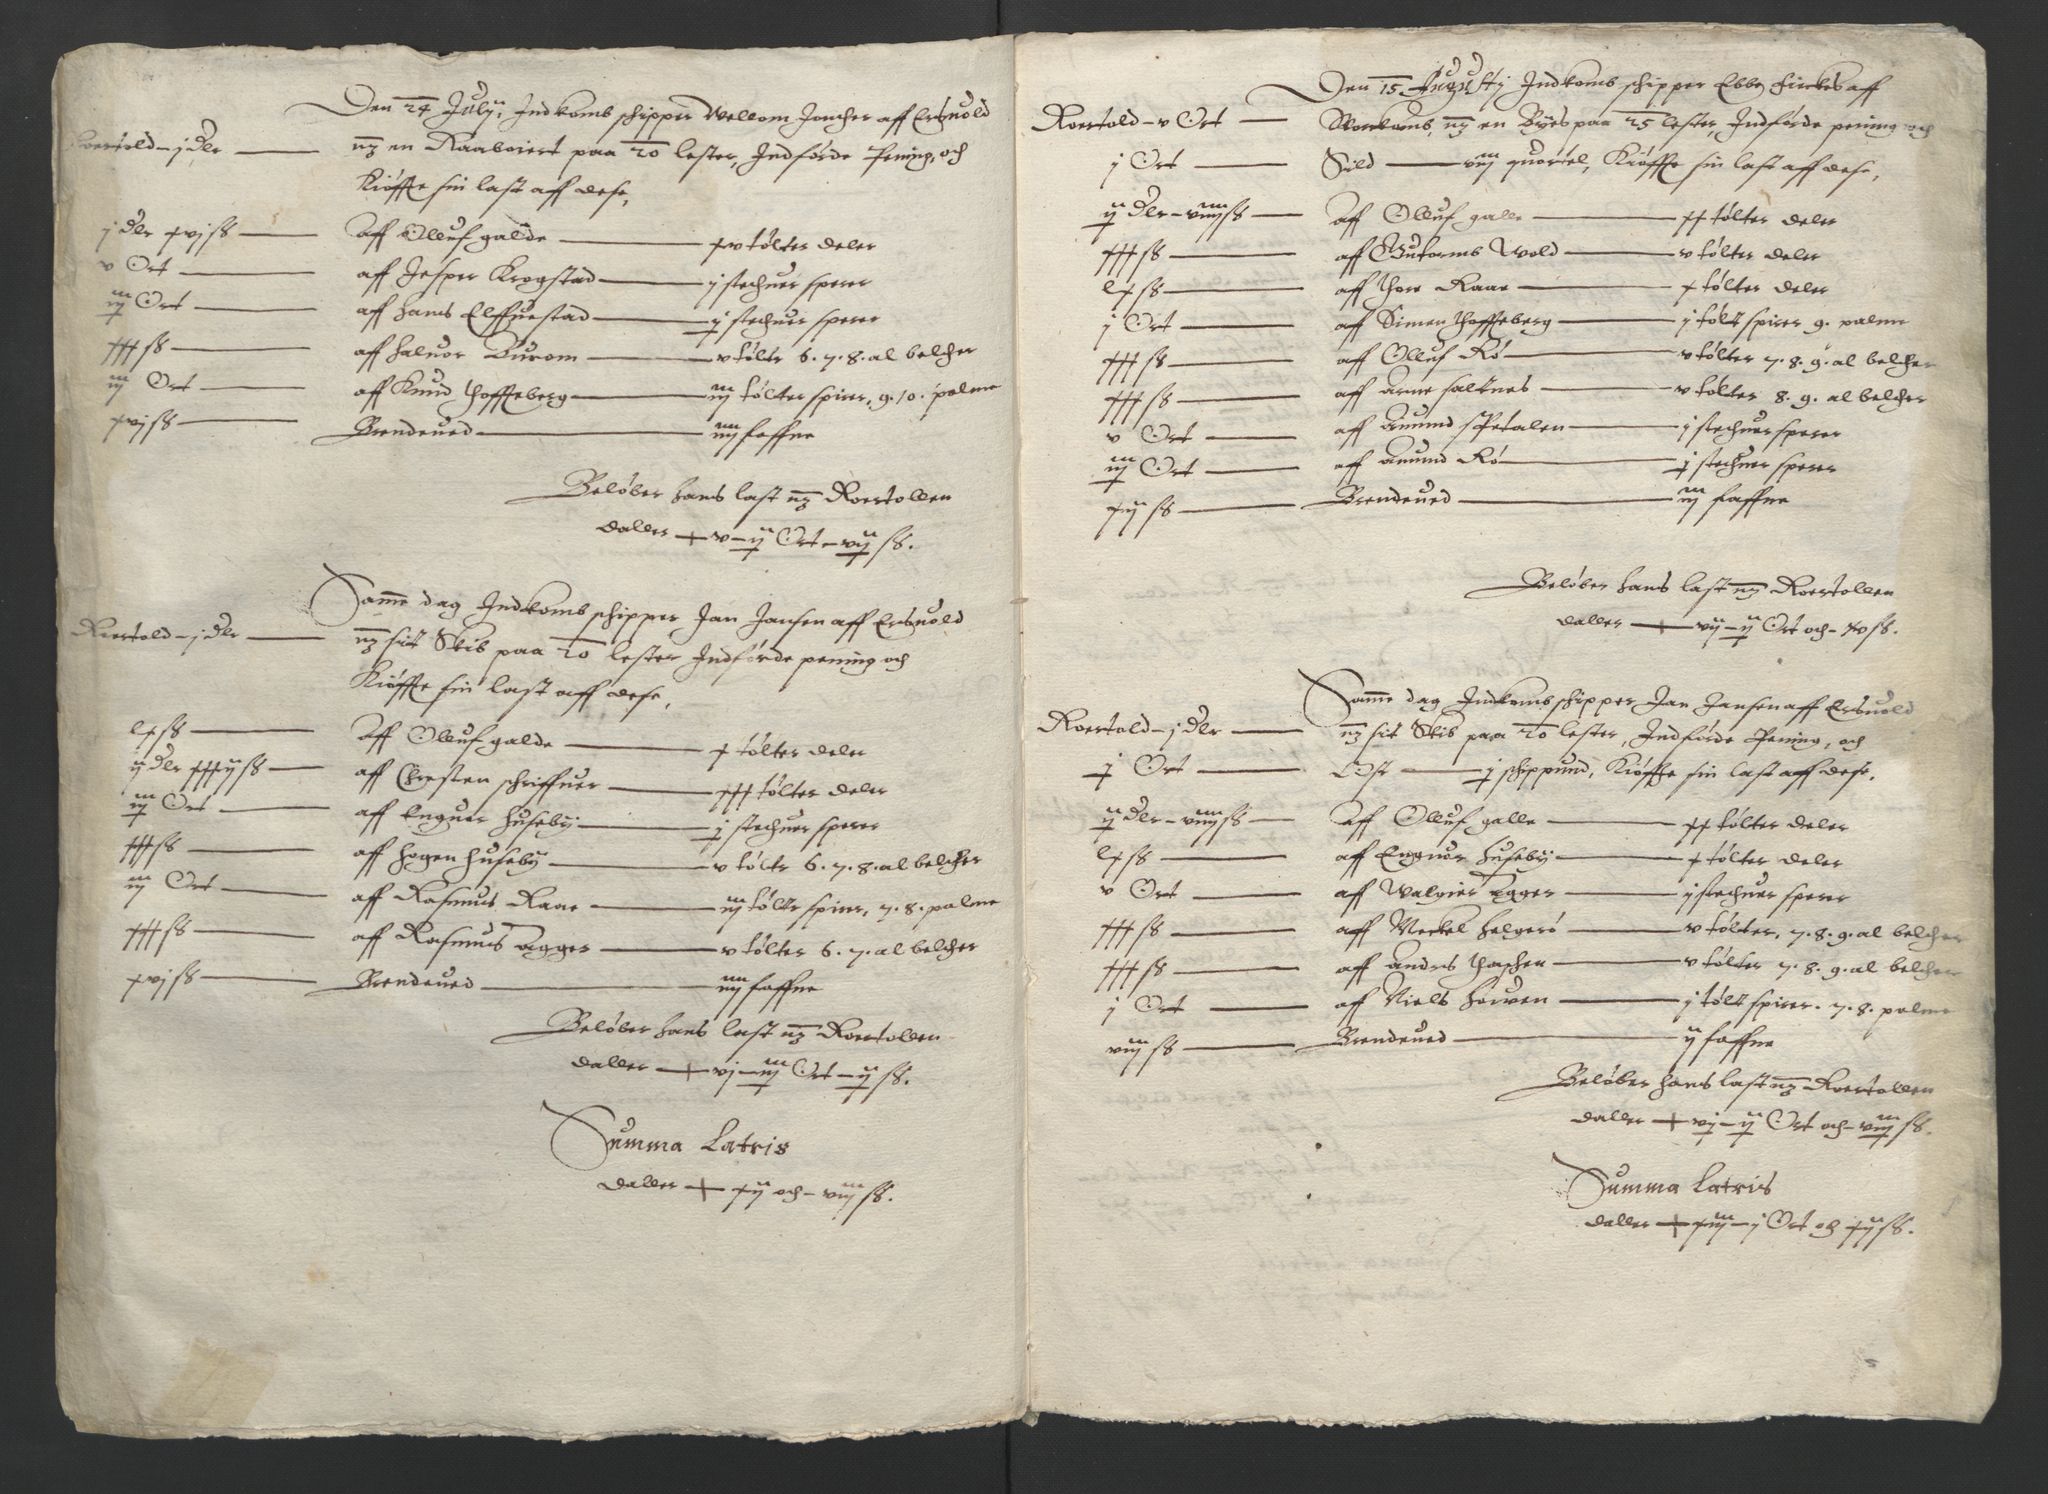 Den 24 Julij, Indkomb schipper Wellom Joncher aff Ensuold
Roertold – j dlr — mz en Raaboiert paa 20 lester, Indførde Pening, och
Kiøffte sin last aff dese,
j dlr xvj ß — Aff Olluf galde — xv tølter deler
v Ort — aff Jesper Krogstad — j stechuer sperer
iij Ort — aff Hans Elffuestad — ij stechuer sperer
xxx ß — aff Haluor Burom — v tølter 6. 7. 8. al belcher
iij Ort — aff Knud Thoffteberg — iij tølter spirer, 9. 10. palme
xvj ß — Brendeued — iiij faffne
Beløber hans last mz Roertollen
daller + v – ij Ort – vij ß.
Samme dag Indkomb schipper Jan Jansen aff Ensuold
Roertold – j dlr — mz sit Skib paa 20 lester Indførde pening och
Kiøffte sin last aff dese,
lx ß — Aff Olluf galde — x tølter deler
ij dlr xxxij ß — aff Chresten schriffuer — xxx tølter deler
iij Ort — aff Enguer Huseby — ij stechuer sperer
xxx ß — aff Hogen Huseby — v tølter 6. 7. 8. al belcher
iij Ort — aff Rasmus Raae — iij tølter spirer, 7. 8. palme
xxx ß — aff Rasmus Agger — v tølter 6. 7. al belcher
xvj ß — Brendeued — iiij faffne
Beløber hans last mz Roertollen
daller + vj – iij Ort – ij ß.
Summa Latris
daller + xij och – viij ß.
Den 15 Augustij Indkomb schipper Ebbe Finckes aff
Roertold – v Ort — mz en Byes paa 25 lester, Indførde pening och
j Ort — Sild — viij quortel, Kiøffte sin last aff dese,
ij dlr – viiij ß — aff Olluf galle — xx tølter deler
xxx ß — aff Gutormb Wold — v tølter deler
lx ß — aff Thore Raae — x tølter deler
j Ort — aff Simen Thoffteberg — j tølt spirer 9. palme
xxx ß — aff Olluf Rö — v tølter 7. 8. 9. al belcher
xxx ß — aff Arne Saltnes — v tølter 8. 9. al belcher
v Ort — aff Amund Spetalen — j stechuer sperer
iij Ort — aff Amund Rö — ij stechuer sperer
xij ß — Brendeued — iij faffne
Beløber hans last mz Roertollen
daller + vij – ij Ort och – xv ß.
Samme dag Indkomb schipper Jan Jansen aff Ensuold
Roertold – j dlr — mz sit Skib paa 20 lester, Indførde Pening, och
ij Ort — Ost — ij schippund, Kiøffte sin last aff dese,
ij dlr – viiij ß — Aff Olluf galle — xx tølter deler
lx ß — aff Enguor Huseby — x tølter deler
v Ort — aff Walgier Agger — j stechuer sperer
xxx ß — aff Meckel Helgerö — v tølter, 7. 8. 9. al belcher
xxx ß — aff Anders — v tølter 7. 8. 9. al belcher
j Ort — aff Niels — j tølt spirer. 7. 8. palme
viij ß — Brendeued — ij faffne
Beløber hans last mz Roertollen
daller + vj – ij Ort och – viij ß.
Summa Latris
daller + xiiij – j Ort och xij ß.